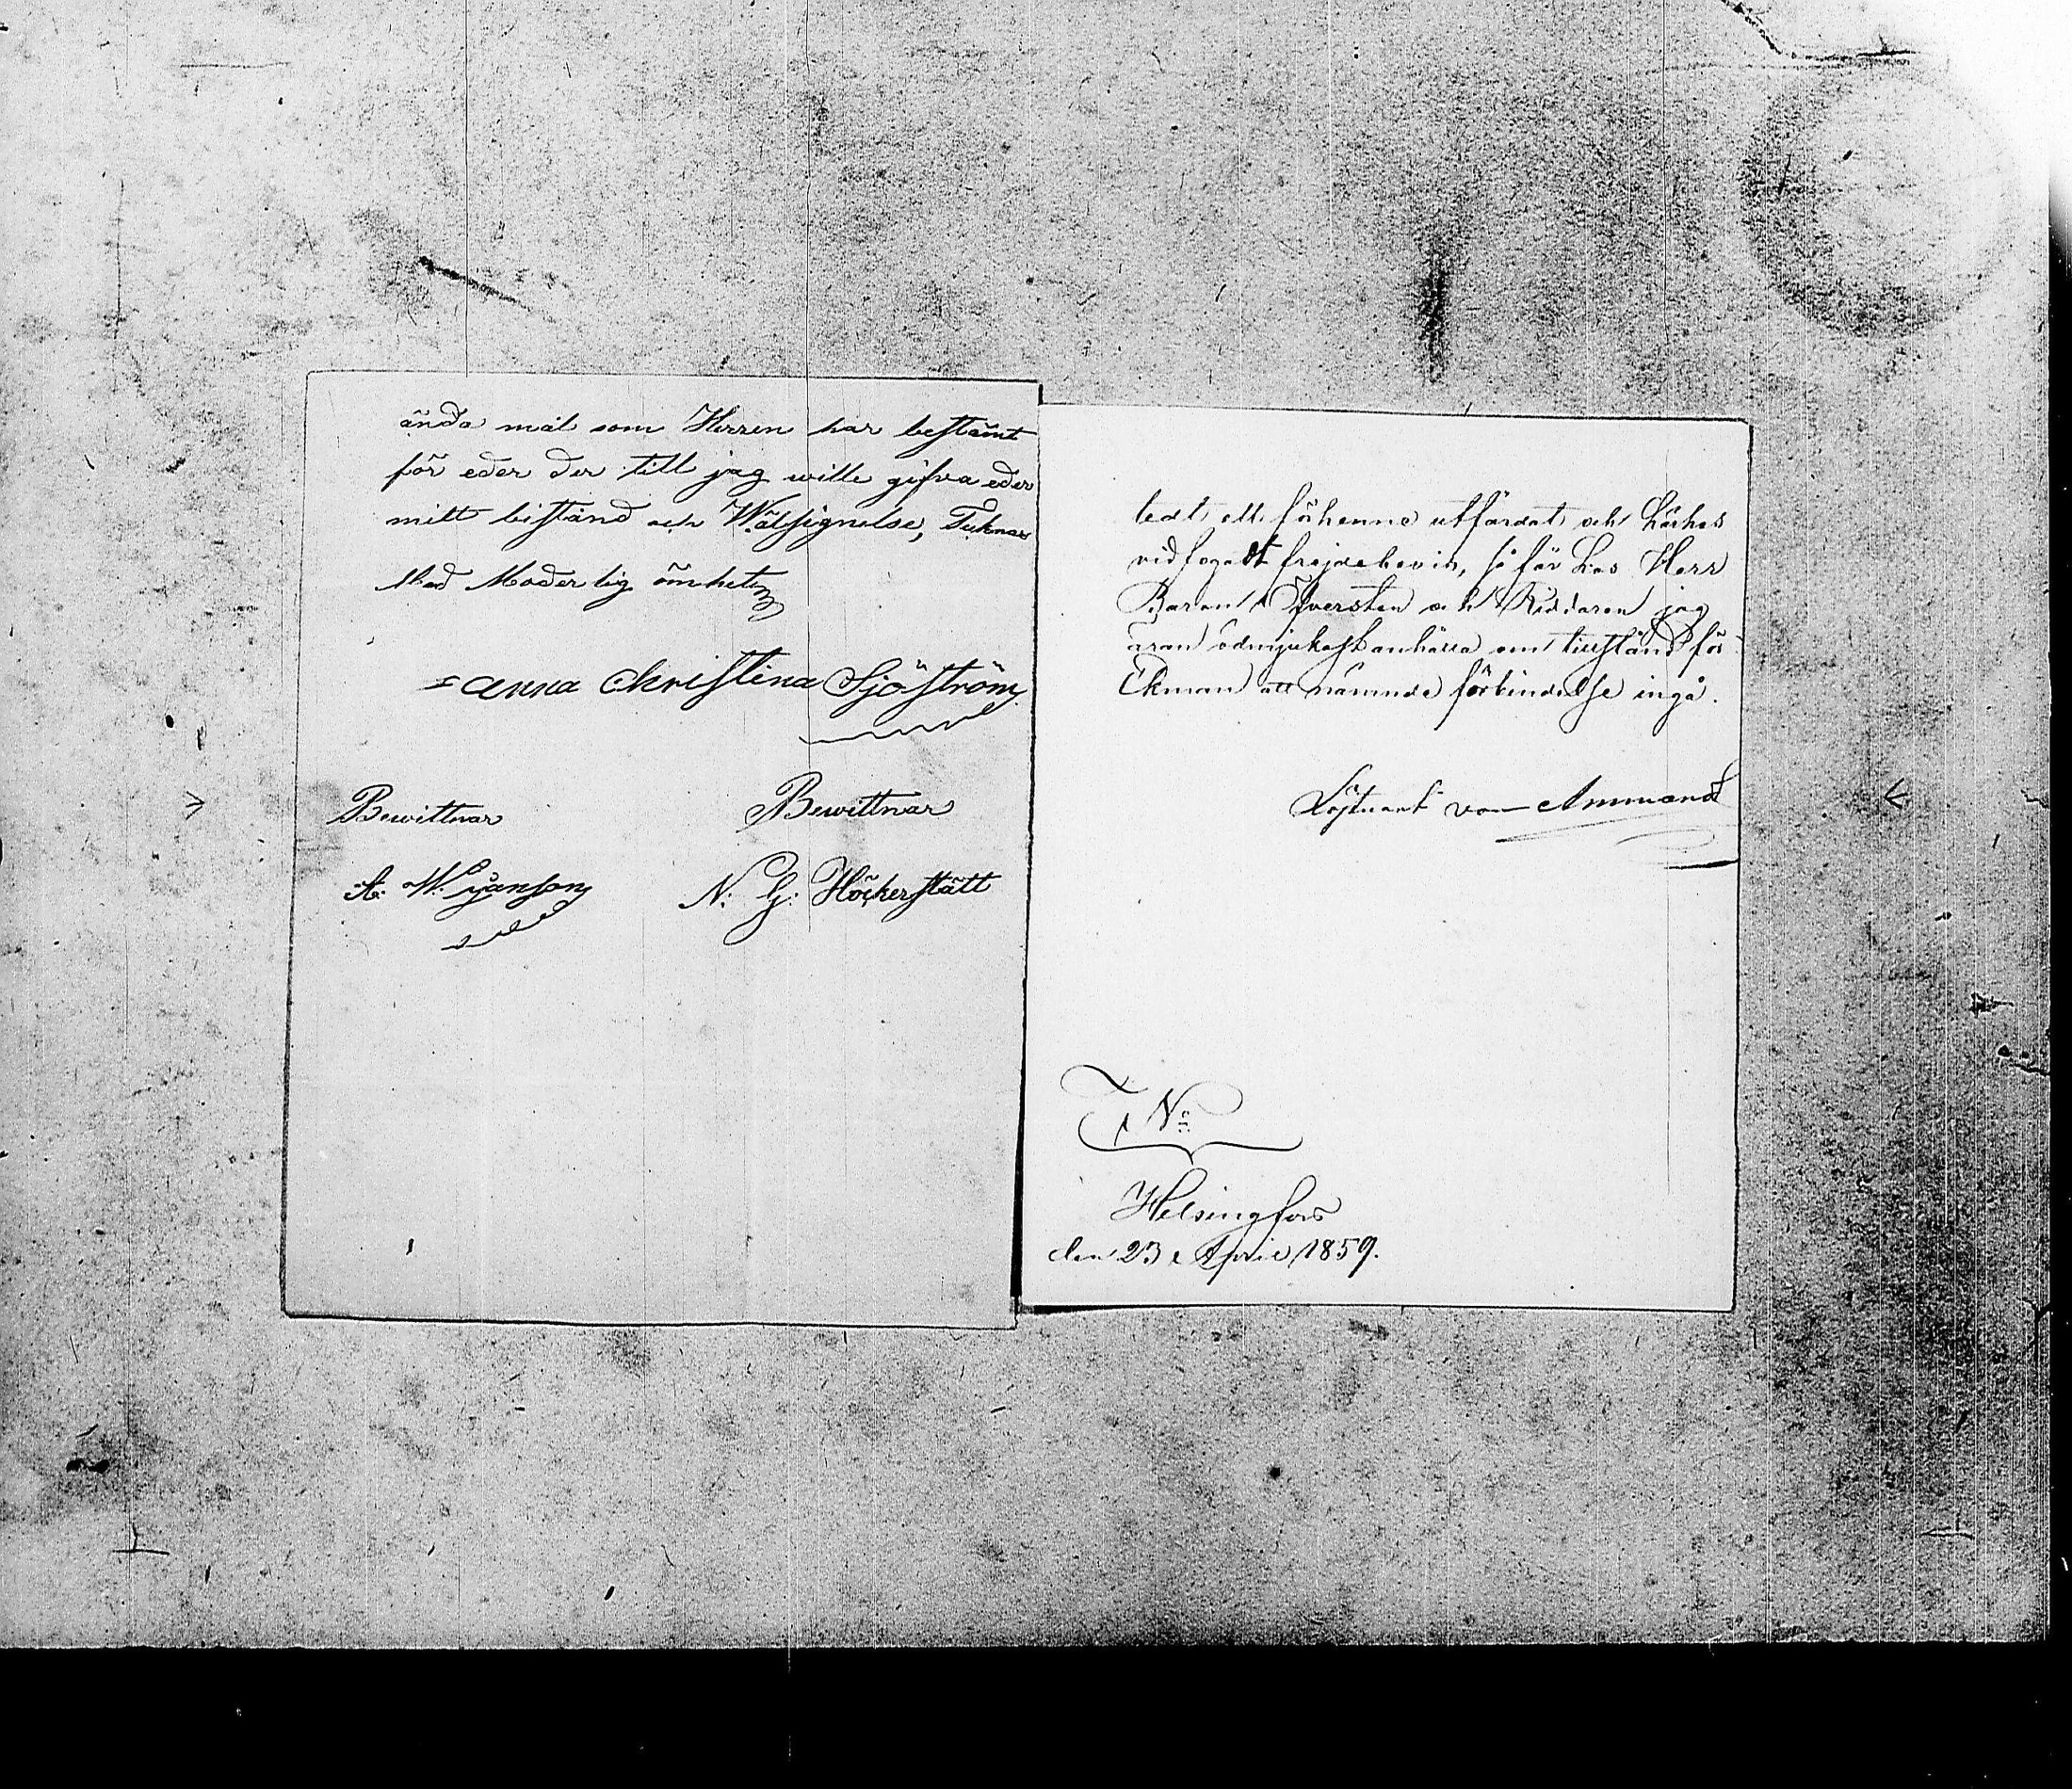 ända mål som Herren har bestämt
för eder der till jag wille gifva eder
mitt bistånd och Wälsignelse, Teknar
Med Moderlig ömhet
Anna Christina Sjöström
Bewittnar Bewittnar
A. W. Janson N: G: Höckerstätt
tedt ett för henne utfärdat och härhos
vidfogadt frejdebevis, så får hos Herr
Baron Öfversten och Riddaren jag
äran ödmjukast anhålla om tillstånd för
Ekman att nämnde förbindelse ingå.
Löjtnant von Ammondt
No
Helsingfors
den 23 April 1859.